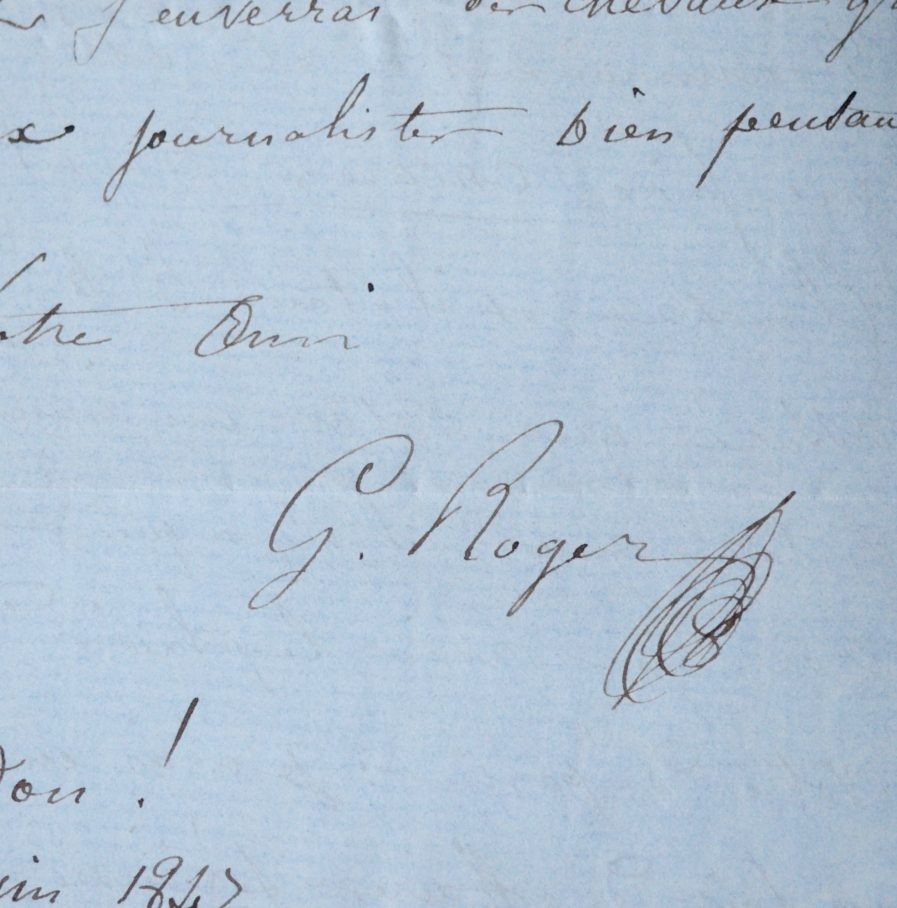 j'enverrai des chevaux
x journalistes bien pensan
otre Ami
G. Roger
don !
uin 1847